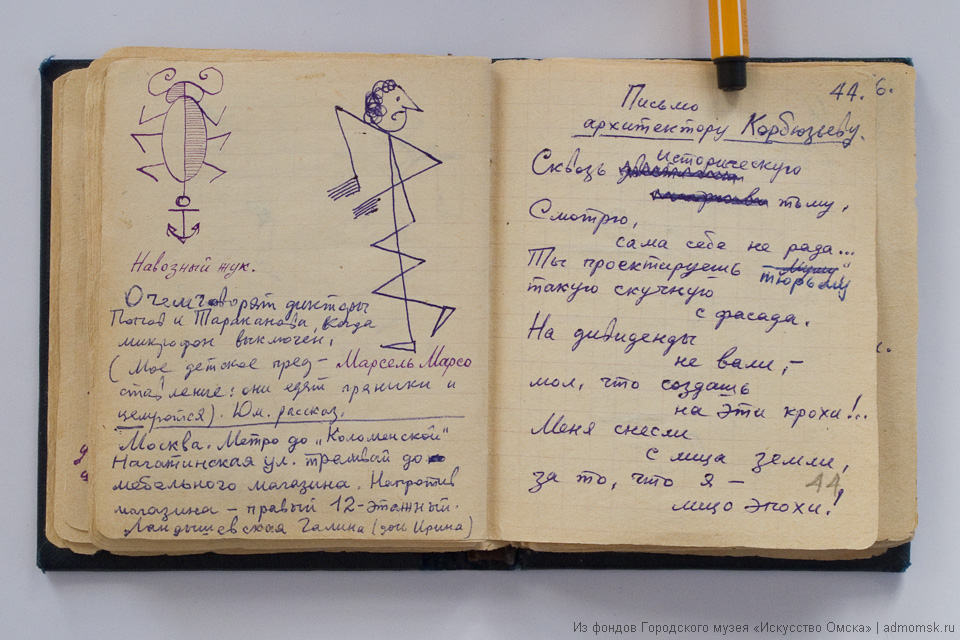 Навозный жук.
О чём говорят дикторы
Попов и Тараканова, когда
микрофон выключен.
(Мое детское пред-
ставление: они едят пряники и
целуются). Юм. рассказ.
Марсель Марсо
Москва. Метро до „Коломенской"
Нагатинская ул. трамвай до
мебельного магазина. Напротив
магазина – правый 12-этажный.
Ландышевская Галина (дочь Ирина)
44. 6.
Письмо
архитектору Корбюзьеву.
Сквозь историческую
тьму,
Смотрю,
сама себе не рада...
Ты проектируешь тюрьму
такую скучную
с фасада.
На дивиденды
не вали, –
мол, что создашь
на эти крохи!..
Меня снесли
с лица земли,
за то, что я –
44
лицо эпохи!
Из фондов Городского музея «Искусство Омска» | admomsk.ru